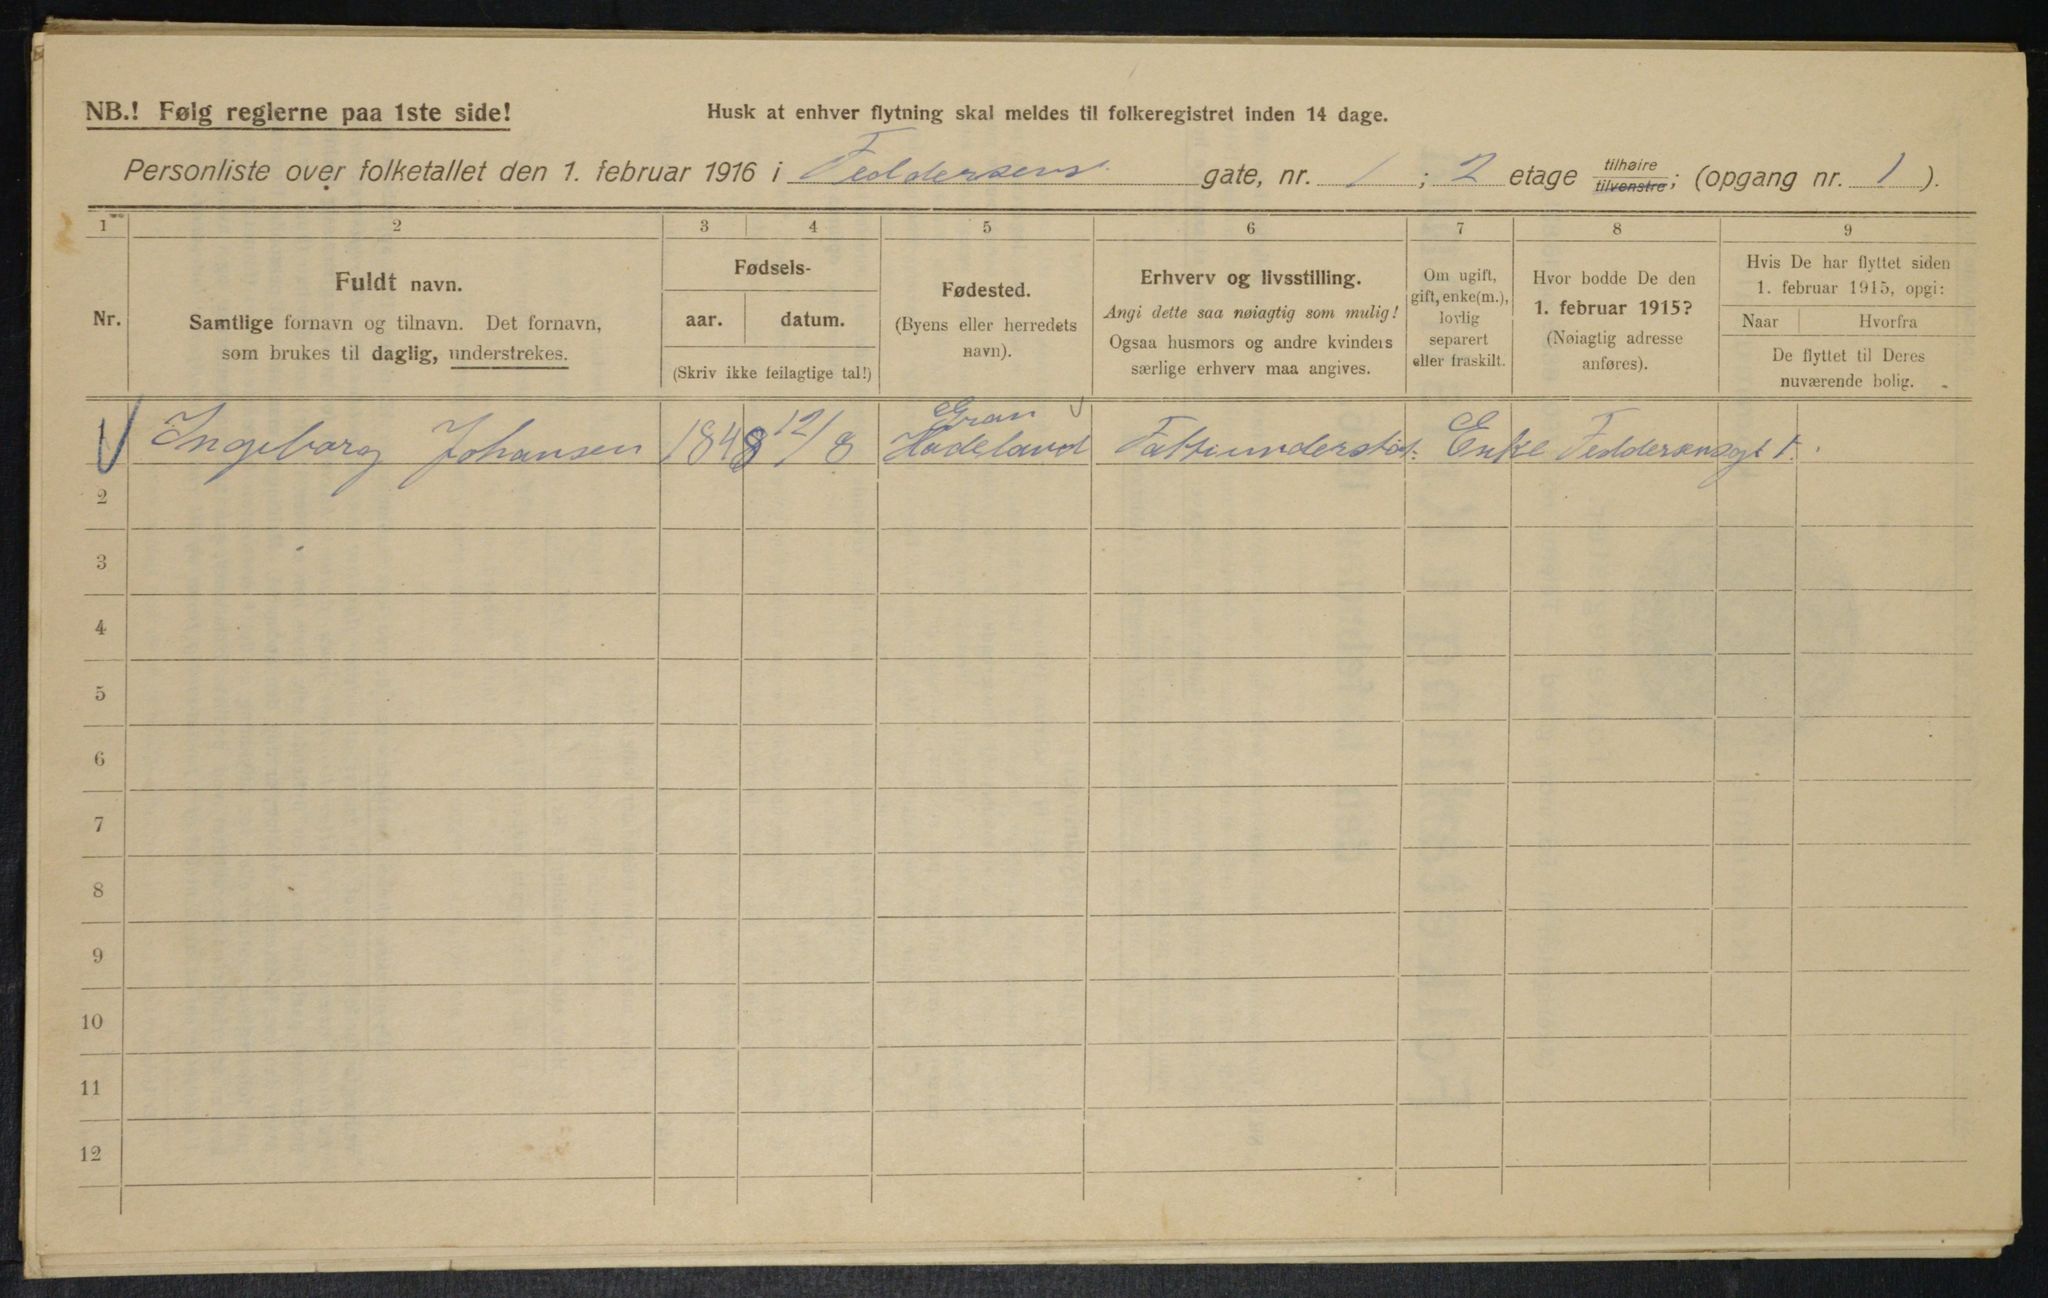 NB.! Følg reglerne paa 1ste side!
Husk at enhver flytning skal meldes til folkeregistret inden 14 dage.
Personliste over folketallet den 1. februar 1916 i Feddersens gate, nr. 1; 2 etage tilhøire tilvenstre; (opgang nr. 1).
1 2 3 4 5 6 7 8 9
Nr.
Fuldt navn.
Samtlige fornavn og tilnavn. Det fornavn,
som brukes til daglig, understrekes.
Fødsels-
aar. datum.
(Skriv ikke feilagtige tal!)
Fødested.
(Byens eller herredets
navn).
Erhverv og livsstilling.
Angi dette saa nøiagtig som mulig!
Ogsaa husmors og andre kvinders
særlige erhverv maa angives.
Om ugift,
gift, enke(m.),
lovlig
separert
eller fraskilt.
Hvor bodde De den
1. februar 1915?
(Nøiagtig adresse
anføres).
Hvis De har flyttet siden
1. februar 1915, opgi:
Naar Hvorfra
De flyttet til Deres
nuværende bolig.
Gran
Ingeborg Johansen 1848 12/8 Hadeland Fattiunderstøt. Enke Feddersensgt 1.
2
3
4
5
6
7
8
9
10
11
12